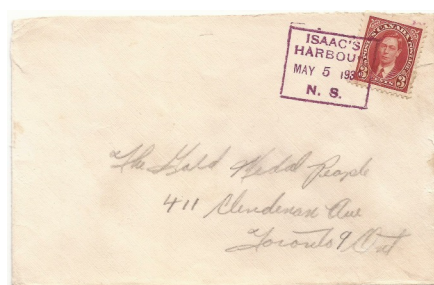 ISAAC'S
HARBOUR
MAY 5 193
N. S.
CANADA
3 3
The Gold Medal People
411 Clendenan Ave
Toronto 9 Ont